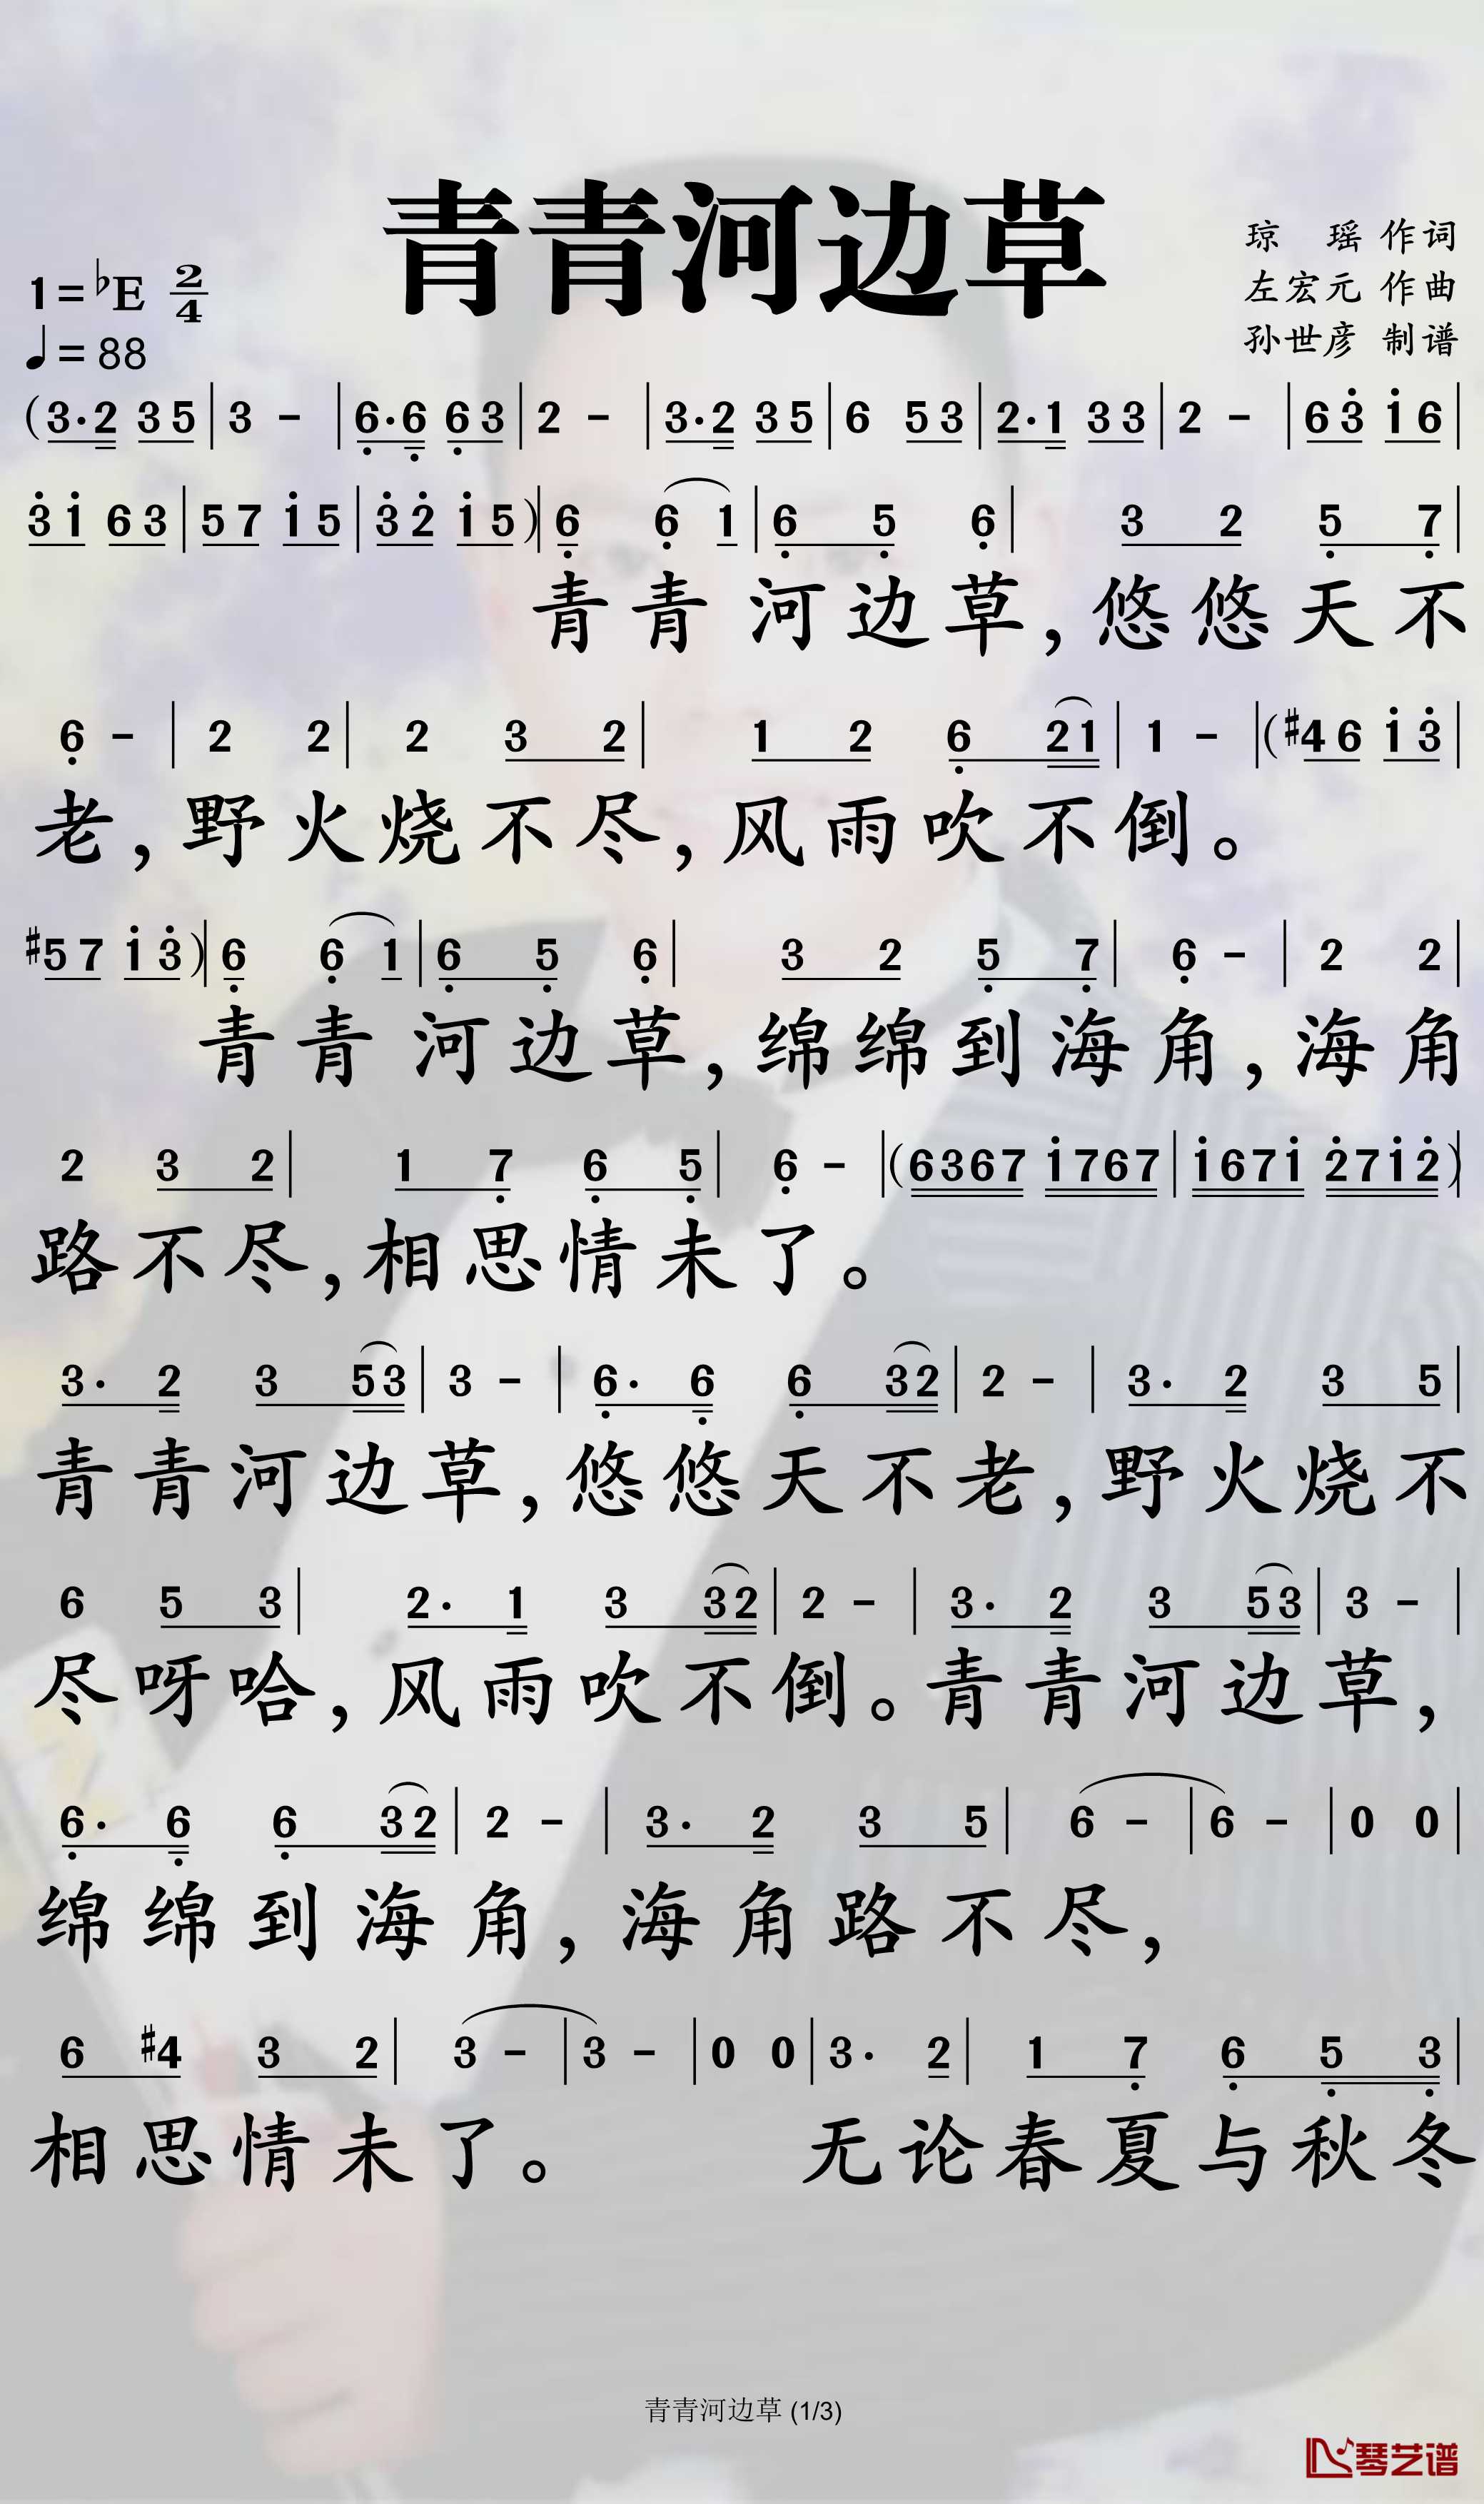 青青河边草
琼 瑶 作词
左宏元 作曲
孙世彦 制谱
1=♭E 2/4
♩=88
(3·2 35|3 -|6̣·6̣ 6̣3|2 -|3·2 35|6 53|2·1 33|2 -|63̇ 1̇6|
3̇1̇ 63|57 1̇5|3̇2̇ 1̇5)|6̣ 6̣ 1|6̣ 5̣ 6̣|3 2 5̣ 7̣|
青青河边草,悠悠天不
6̣ -|2 2|2 3 2|1 2 6̣ 21|1 -|(#46 1̇3̇|
老,野火烧不尽,风雨吹不倒。
#57 1̇3̇)|6̣ 6̣ 1|6̣ 5̣ 6̣|3 2 5̣ 7̣|6̣ -|2 2|
青青河边草,绵绵到海角,海角
2 3 2|1 7̣ 6̣ 5̣|6̣ -|(6367 1̇767|1̇671̇ 2̇71̇2̇)|
路不尽,相思情未了。
3· 2 3 53|3 -|6̣· 6̣ 6̣ 32|2 -|3· 2 3 5|
青青河边草,悠悠天不老,野火烧不
6 5 3|2· 1 3 32|2 -|3· 2 3 53|3 -|
尽呀哈,风雨吹不倒。青青河边草,
6̣· 6̣ 6̣ 32|2 -|3· 2 3 5|6 -|6 -|0 0|
绵绵到海角,海角路不尽,
6 #4 3 2|3 -|3 -|0 0|3· 2|1 7̣ 6̣ 5̣ 3̣|
相思情未了。 无论春夏与秋冬
青青河边草 (1/3)
琴艺谱